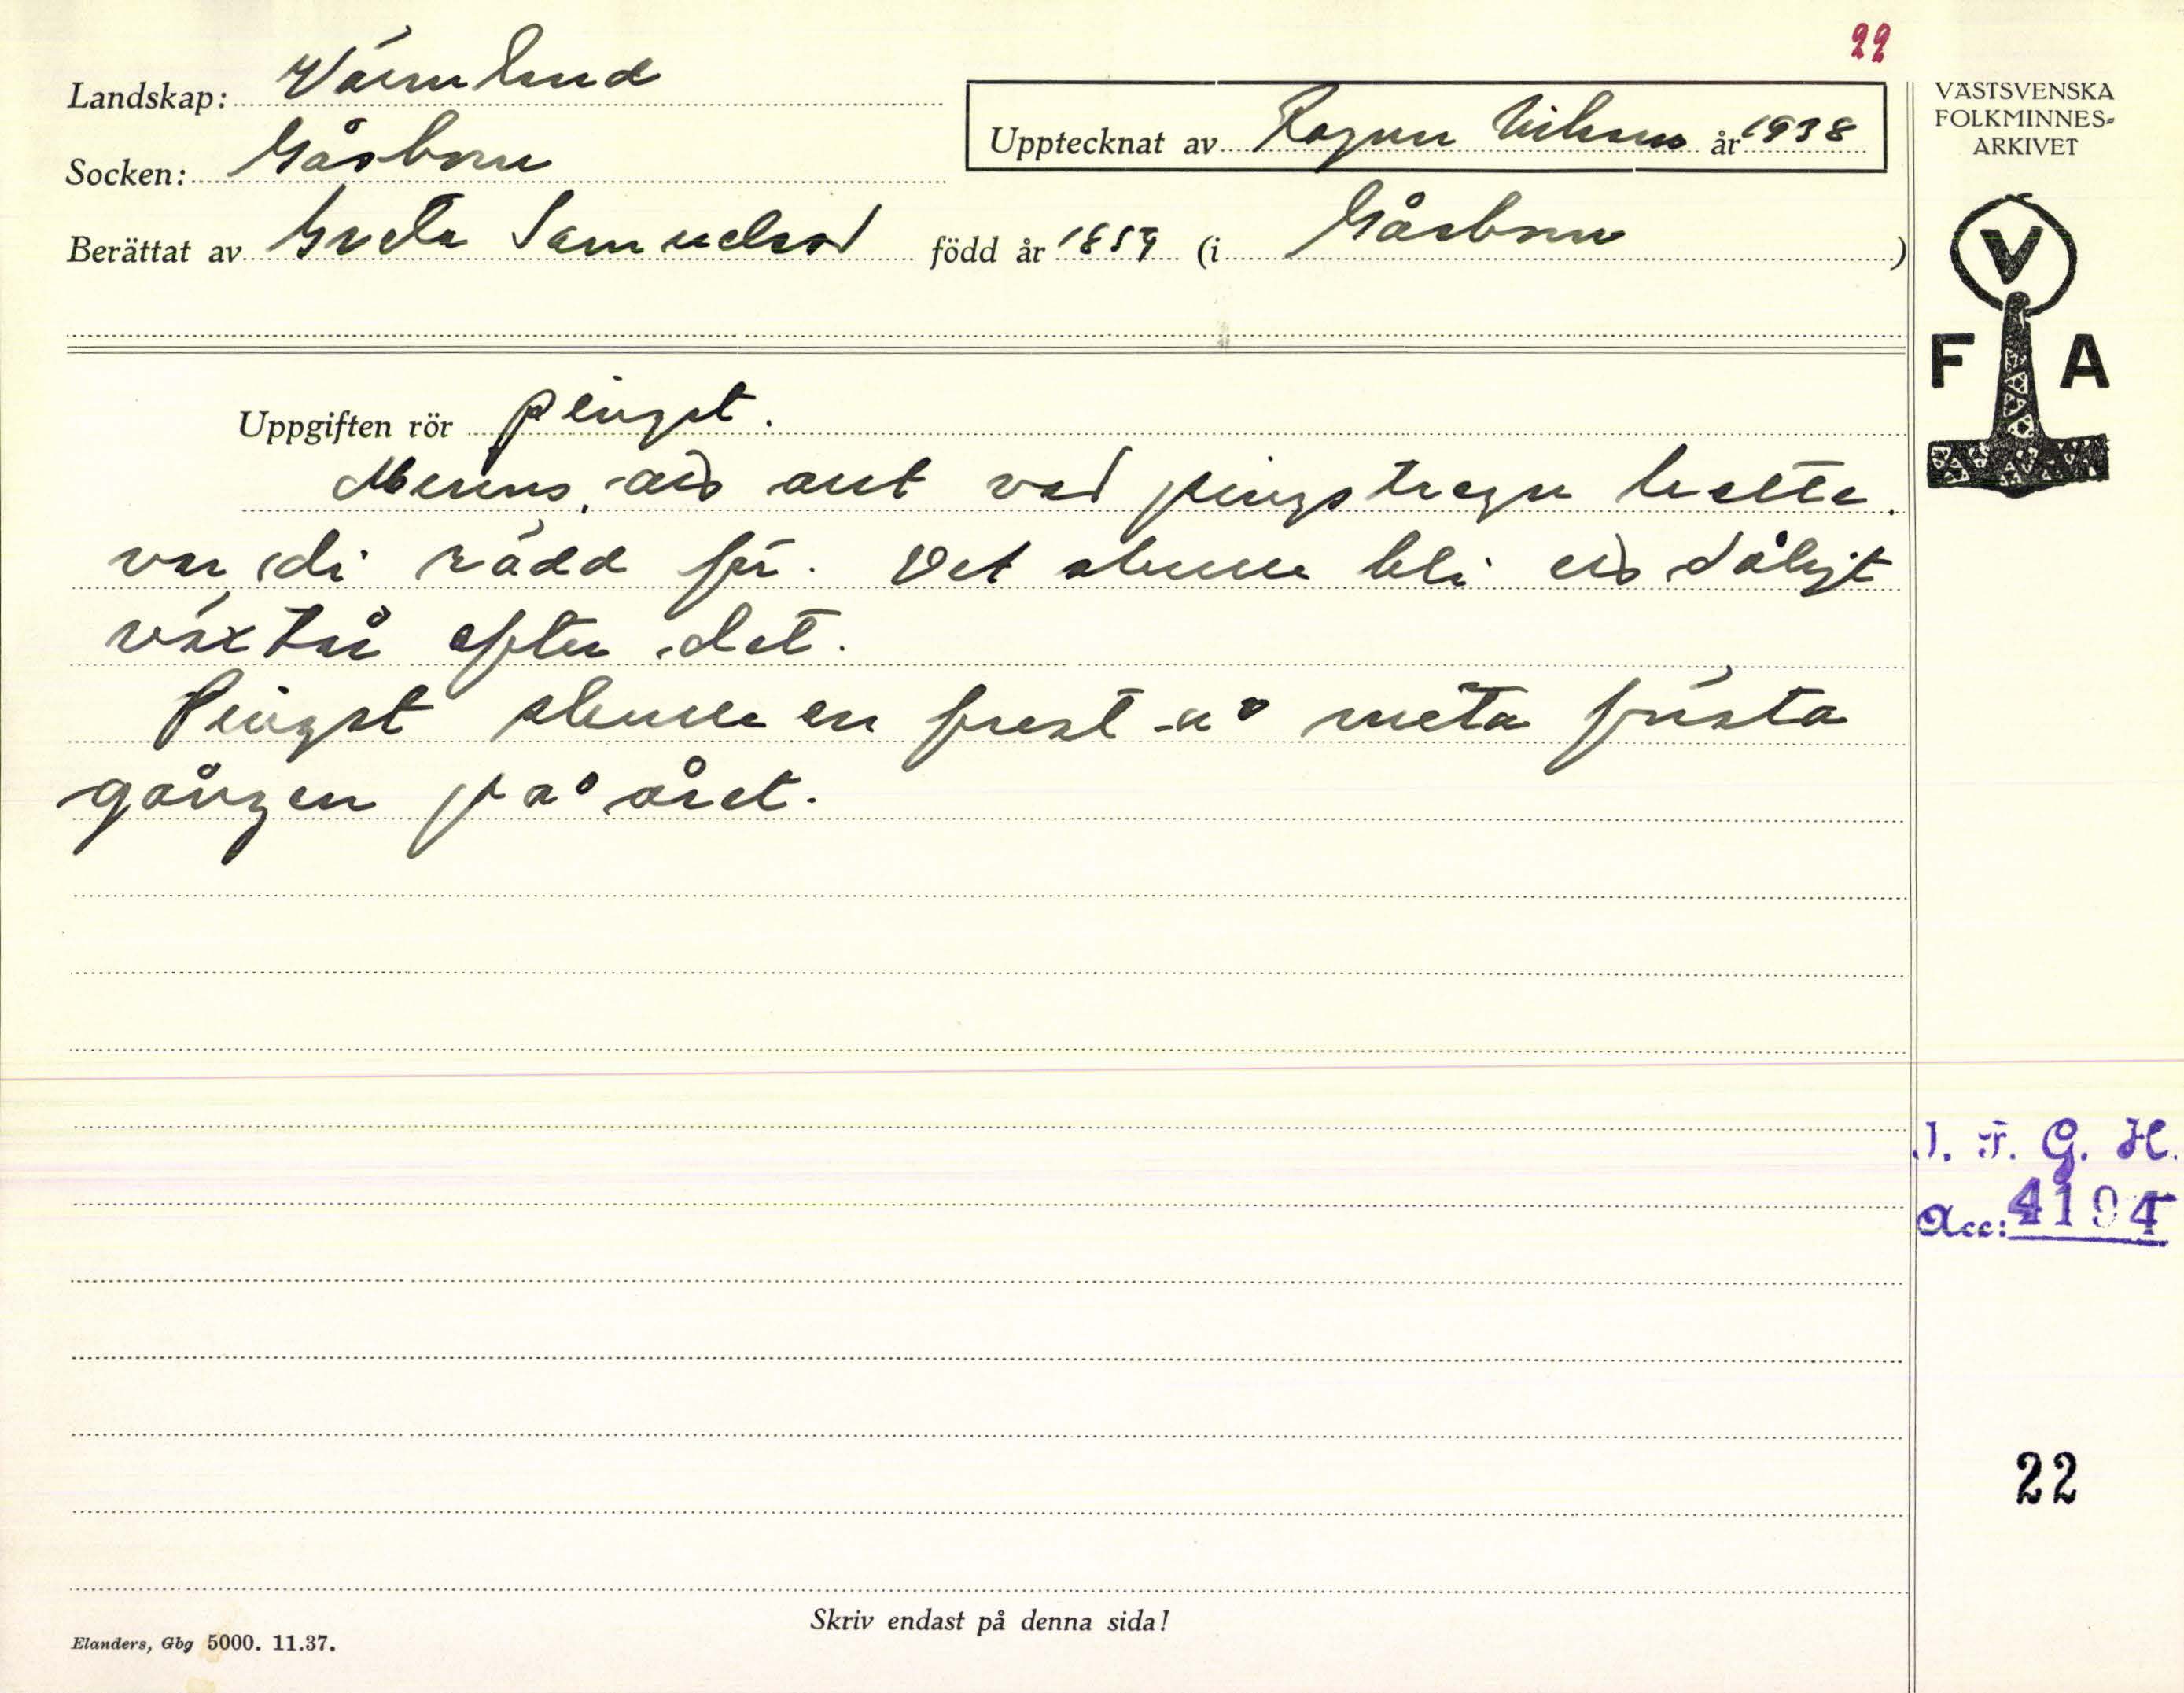 22
Landskap: Värmland
Socken: Gåsborn
Upptecknat av Ragnar Nilsson år 1938
Berättat av Greta Samuelsson född år 1859 (i Gåsborn)
VÄSTSVENSKA
FOLKMINNES-
ARKIVET
V
F A
Uppgiften rör pingst.
Minns, ant vad pingstregn hette.
var di rädd för. Det skulle bli dåligt
växtår efter det.
Pingst skulle en frest å meta första
gången på året.
I. F. G. H.
Acc: 4194
22
Skriv endast på denna sida!
Elanders, Gbg 5000. 11.37.